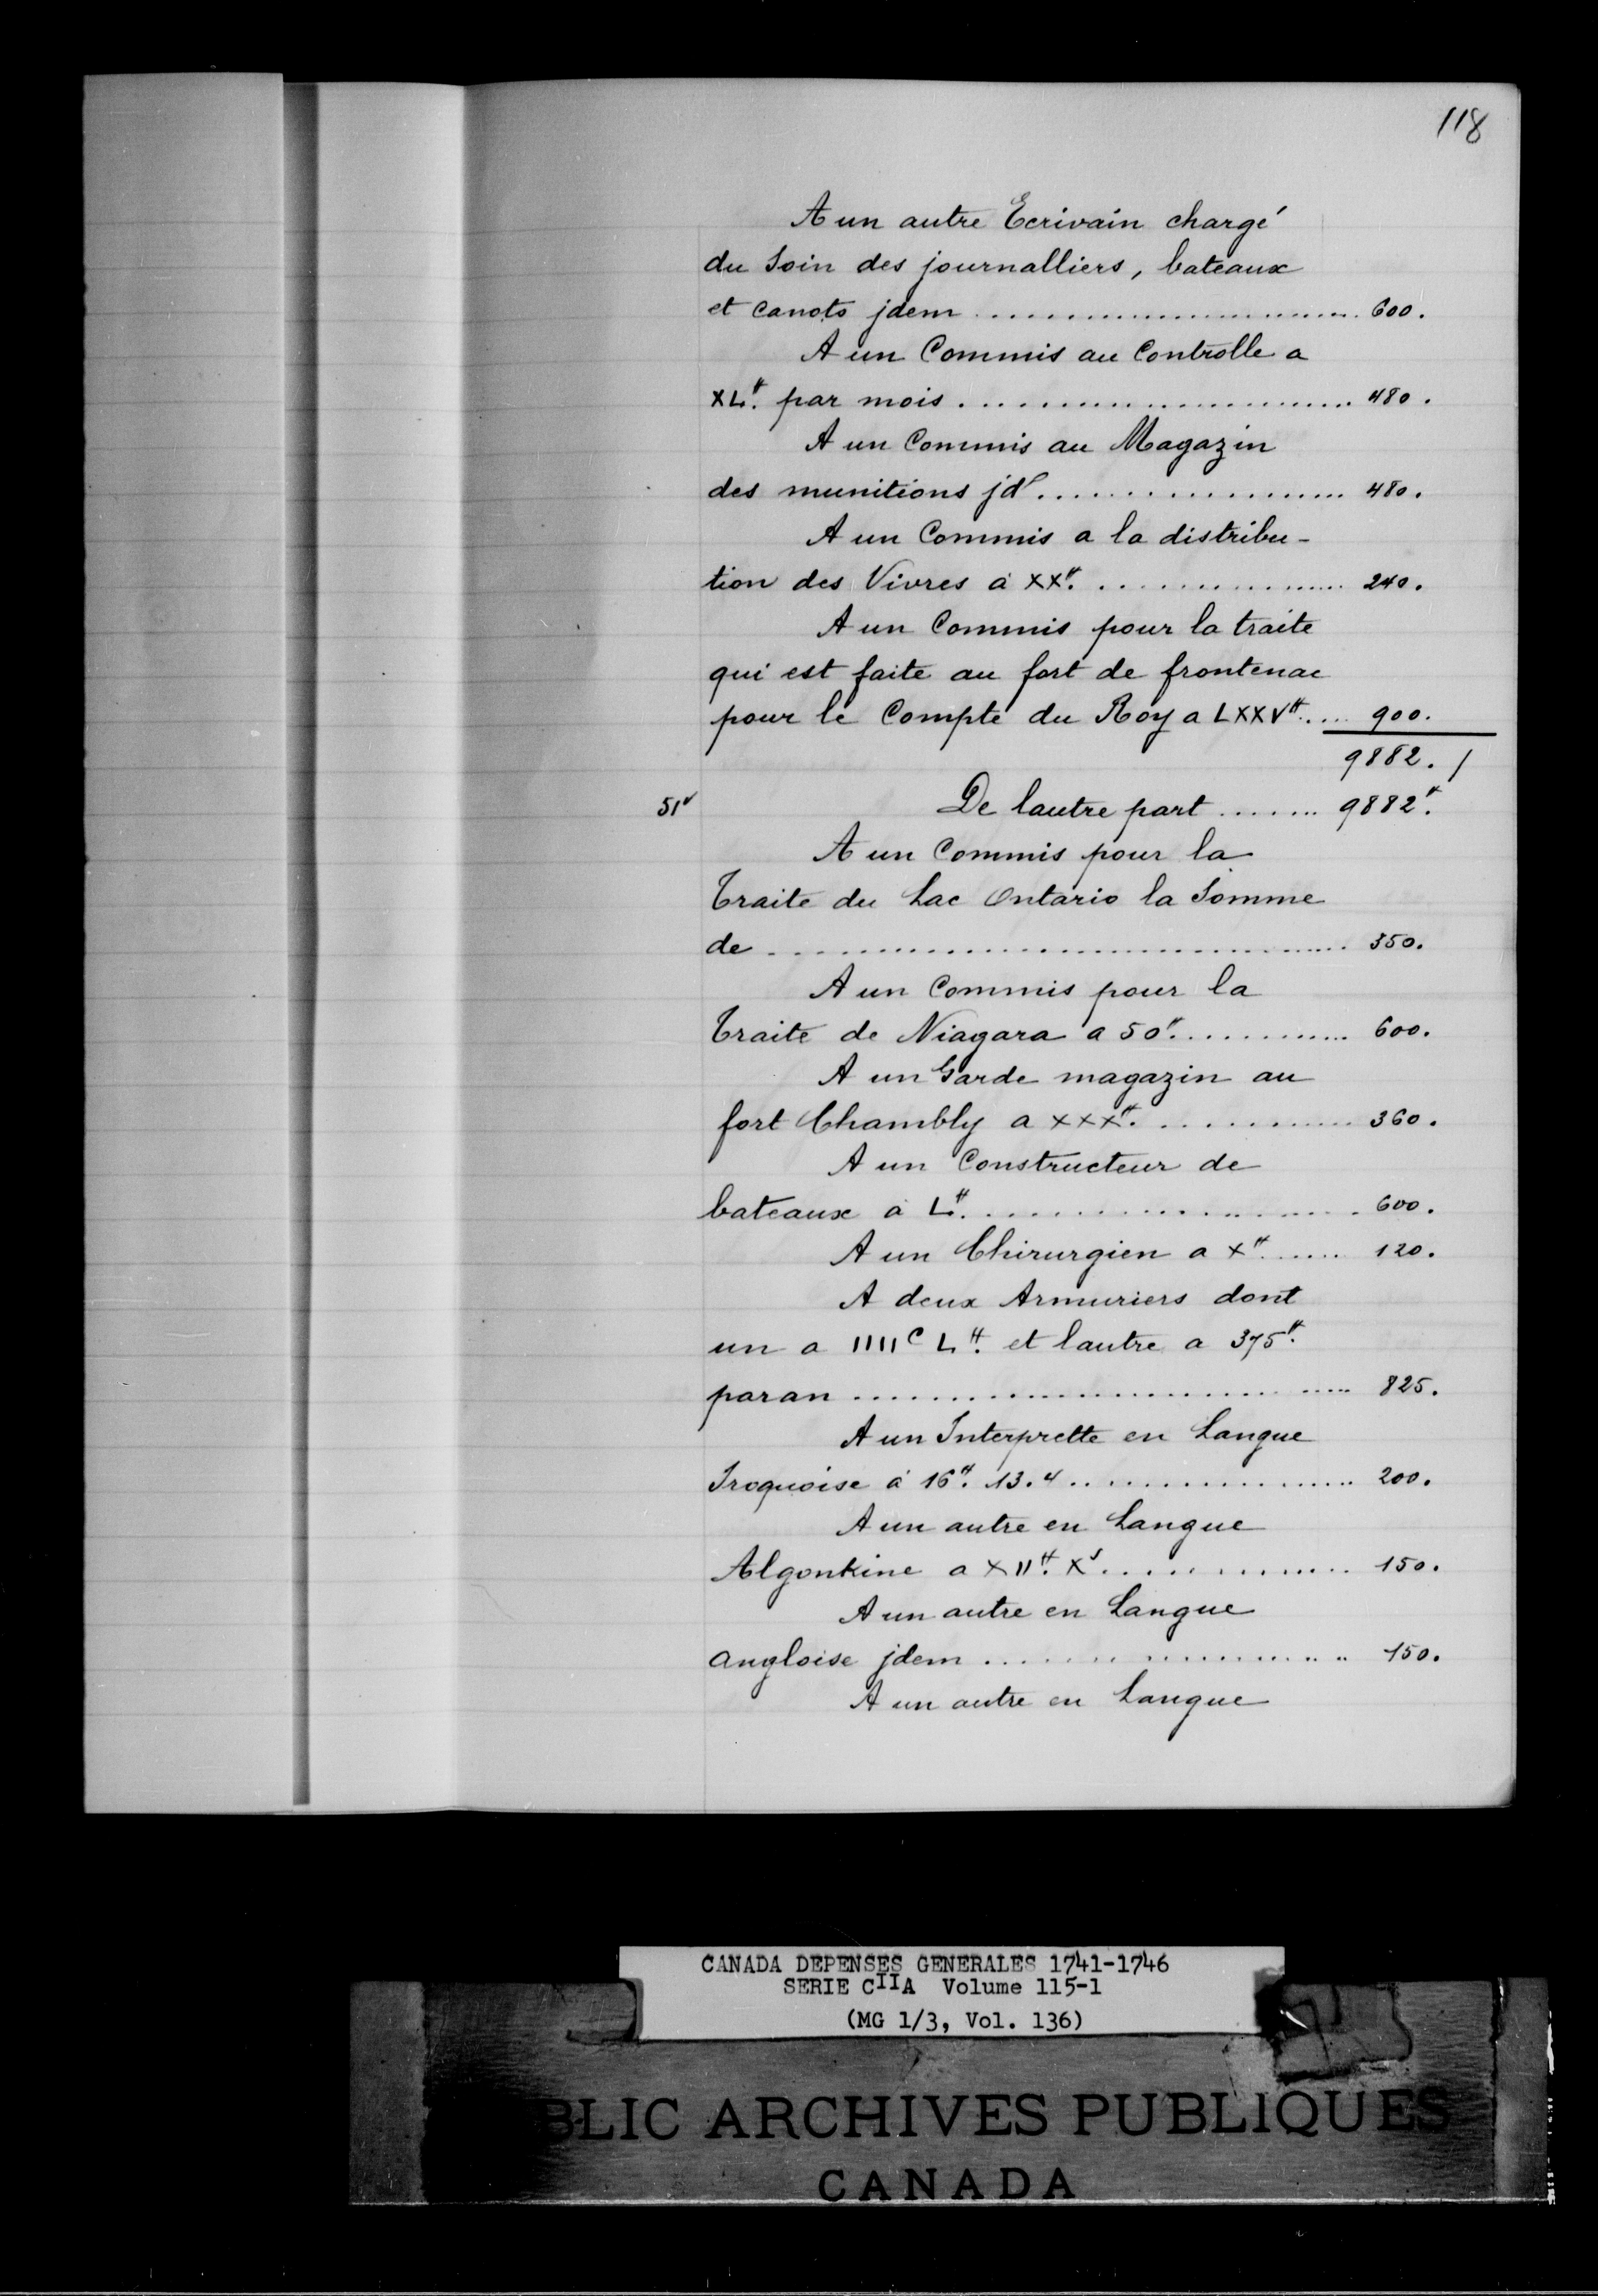 118
A un autre Ecrivain chargé
du Soin des journalliers, bateaux
et canots jdem ........................ 600.
A un Commis au Controlle a
XL#. par mois ........................ 480.
A un Commis au Magazin
des munitions jd ........................ 480.
A un Commis a la distribu-
tion des Vivres à XX#. ........................ 240.
A un Commis pour la traite
qui est faite au fort de frontenac
pour le Compte du Roy a LXXV# ..... 900.
9882. /
51v De lautre part ........ 9882#.
A un Commis pour la
Traite du Lac Ontario la Somme
de ........................ 350.
A un Commis pour la
Traite de Niagara a 50#. ............ 600.
A un Garde magazin au
fort Chambly a XXX#. ............ 360.
A un Constructeur de
bateaux à L#. ........................ 600.
A un Chirurgien a X# ...... 120.
A deux Armuriers dont
un a IIIIC L#. et lautre a 375#.
paran ........................ 825.
A un Interprette en Langue
Iroquoise à 16#. 13. 4 .................. 200.
A un autre en Langue
Algonkine a XII#. Xs ............... 150.
A un autre en Langue
angloise jdem ..................... 150.
A un autre en Langue
CANADA DEPENSES GENERALES 1741-1746
SERIE CIIA Volume 115-1
(MG 1/3, Vol. 136)
BLIC ARCHIVES PUBLIQUES
CANADA